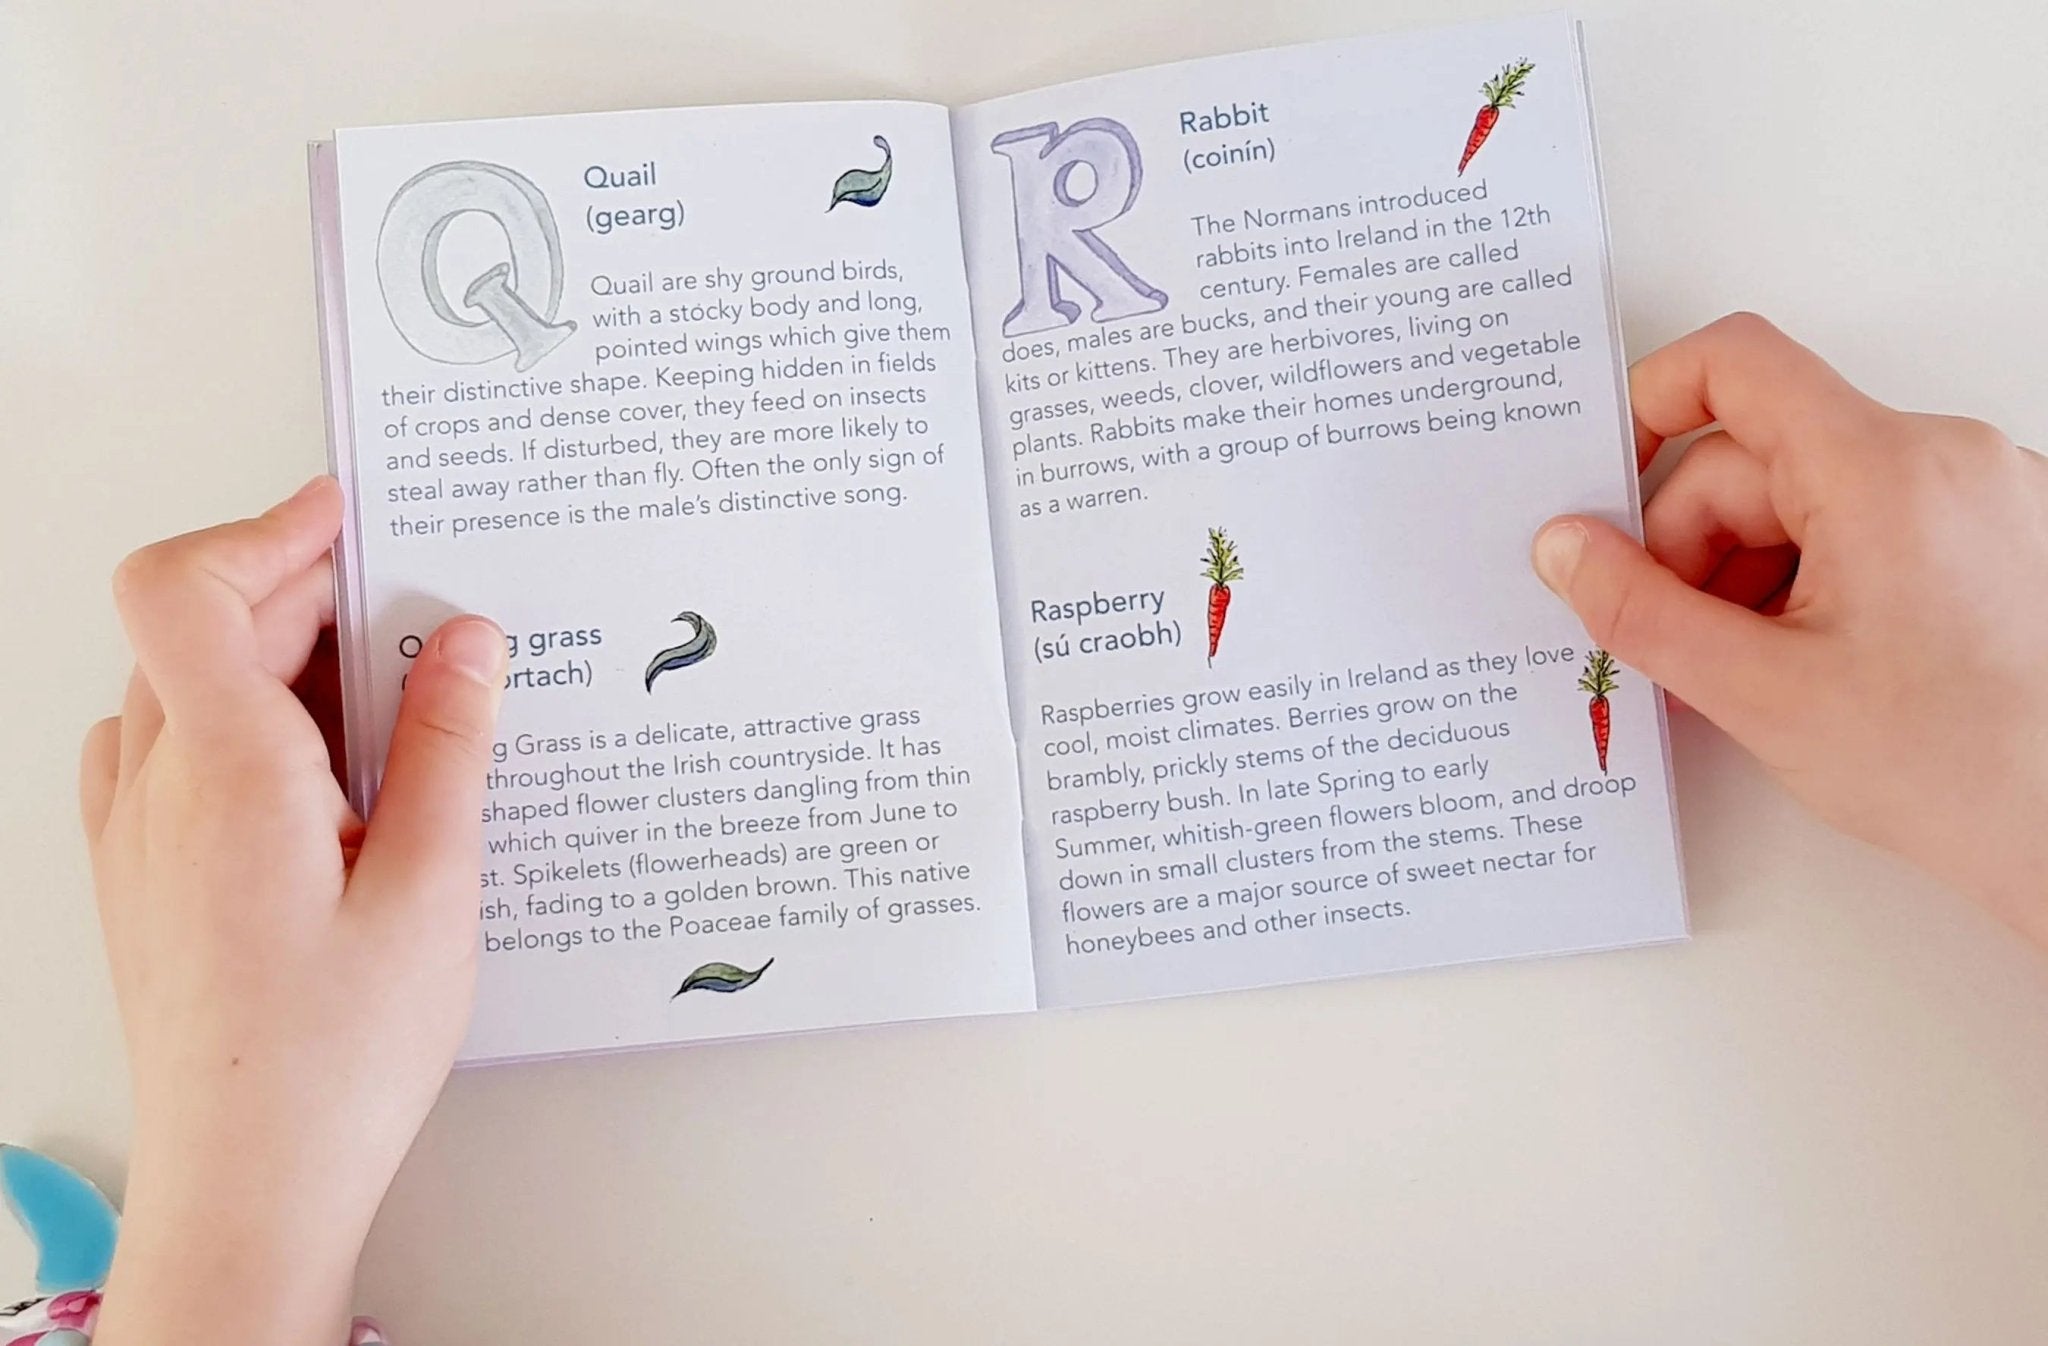 Q
Quail
(gearg)
Quail are shy ground birds,
with a stocky body and long,
pointed wings which give them
their distinctive shape. Keeping hidden in fields
of crops and dense cover, they feed on insects
and seeds. If disturbed, they are more likely to
steal away rather than fly. Often the only sign of
their presence is the male's distinctive song.
grass
g Grass is a delicate, attractive grass
throughout the Irish countryside. It has
shaped flower clusters dangling from thin
which quiver in the breeze from June to
Spikelets (flowerheads) are green or
fading to a golden brown. This native
belongs to the Poaceae family of grasses.
R
Rabbit
(coinín)
The Normans introduced
rabbits into Ireland in the 12th
century. Females are called
does, males are bucks, and their young are called
kits or kittens. They are herbivores, living on
grasses, weeds, clover, wildflowers and vegetable
plants. Rabbits make their homes underground,
in burrows, with a group of burrows being known
as a warren.
Raspberry
(sú craobh)
Raspberries grow easily in Ireland as they love
cool, moist climates. Berries grow on the
brambly, prickly stems of the deciduous
raspberry bush. In late Spring to early
Summer, whitish-green flowers bloom, and droop
down in small clusters from the stems. These
flowers are a major source of sweet nectar for
honeybees and other insects.